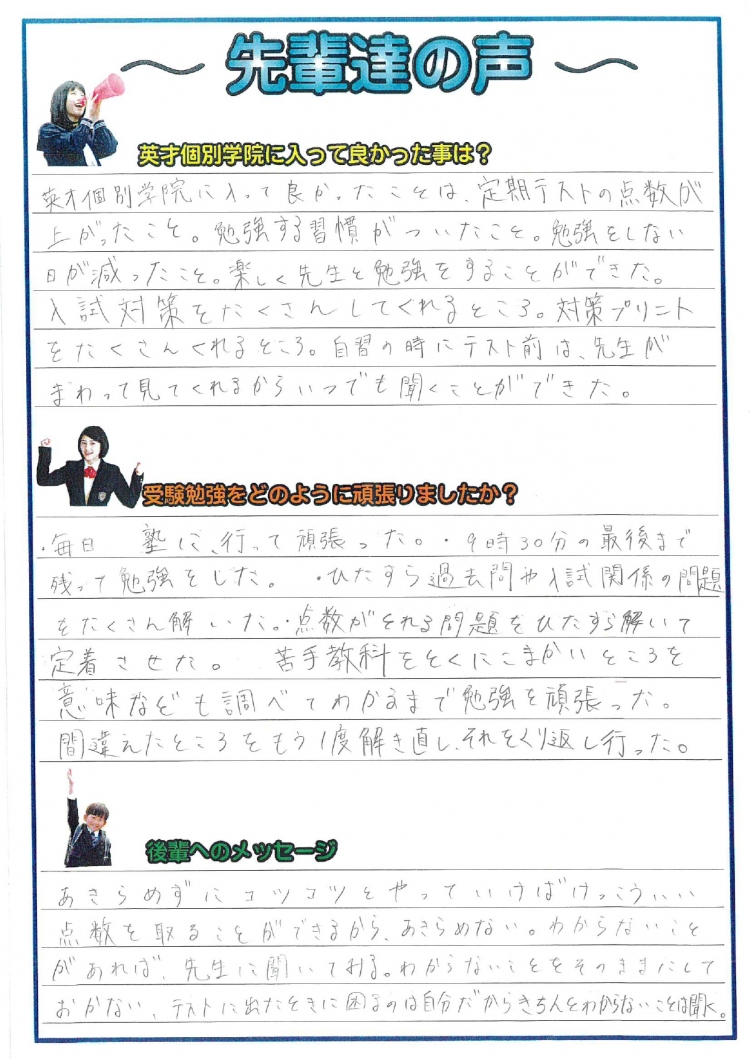 先輩達の声
英才個別学院に入って良かった事は？
英才個別学院に入って良かったことは、定期テストの点数が
上がったこと。勉強する習慣がついたこと。勉強をしない
日が減ったこと。楽しく先生と勉強をすることができた。
入試対策をたくさんしてくれるところ。対策プリント
をたくさんくれるところ。自習の時にテスト前は、先生が
まわって見てくれるからいつでも聞くことができた。
受験勉強をどのように頑張りましたか？
・毎日 塾に、行って頑張った。・9時30分の最後まで
残って勉強をした。 ・ひたすら過去問や入試関係の問題
をたくさん解いた。・点数がとれる問題をひたすら解いて
定着させた。 苦手教科をとくにこまかいところを
意味なども調べてわかるまで勉強を頑張った。
間違えたところをもう1度解き直し、それをくり返し行った。
後輩へのメッセージ
あきらめずにコツコツとやっていけばけっこういい
点数を取ることができるから、あきらめない。わからないこと
があれば、先生に聞いてみる。わからないことをそのままにして
おかない、テストに出たときに困るのは自分だからきちんとわからないことは聞く。